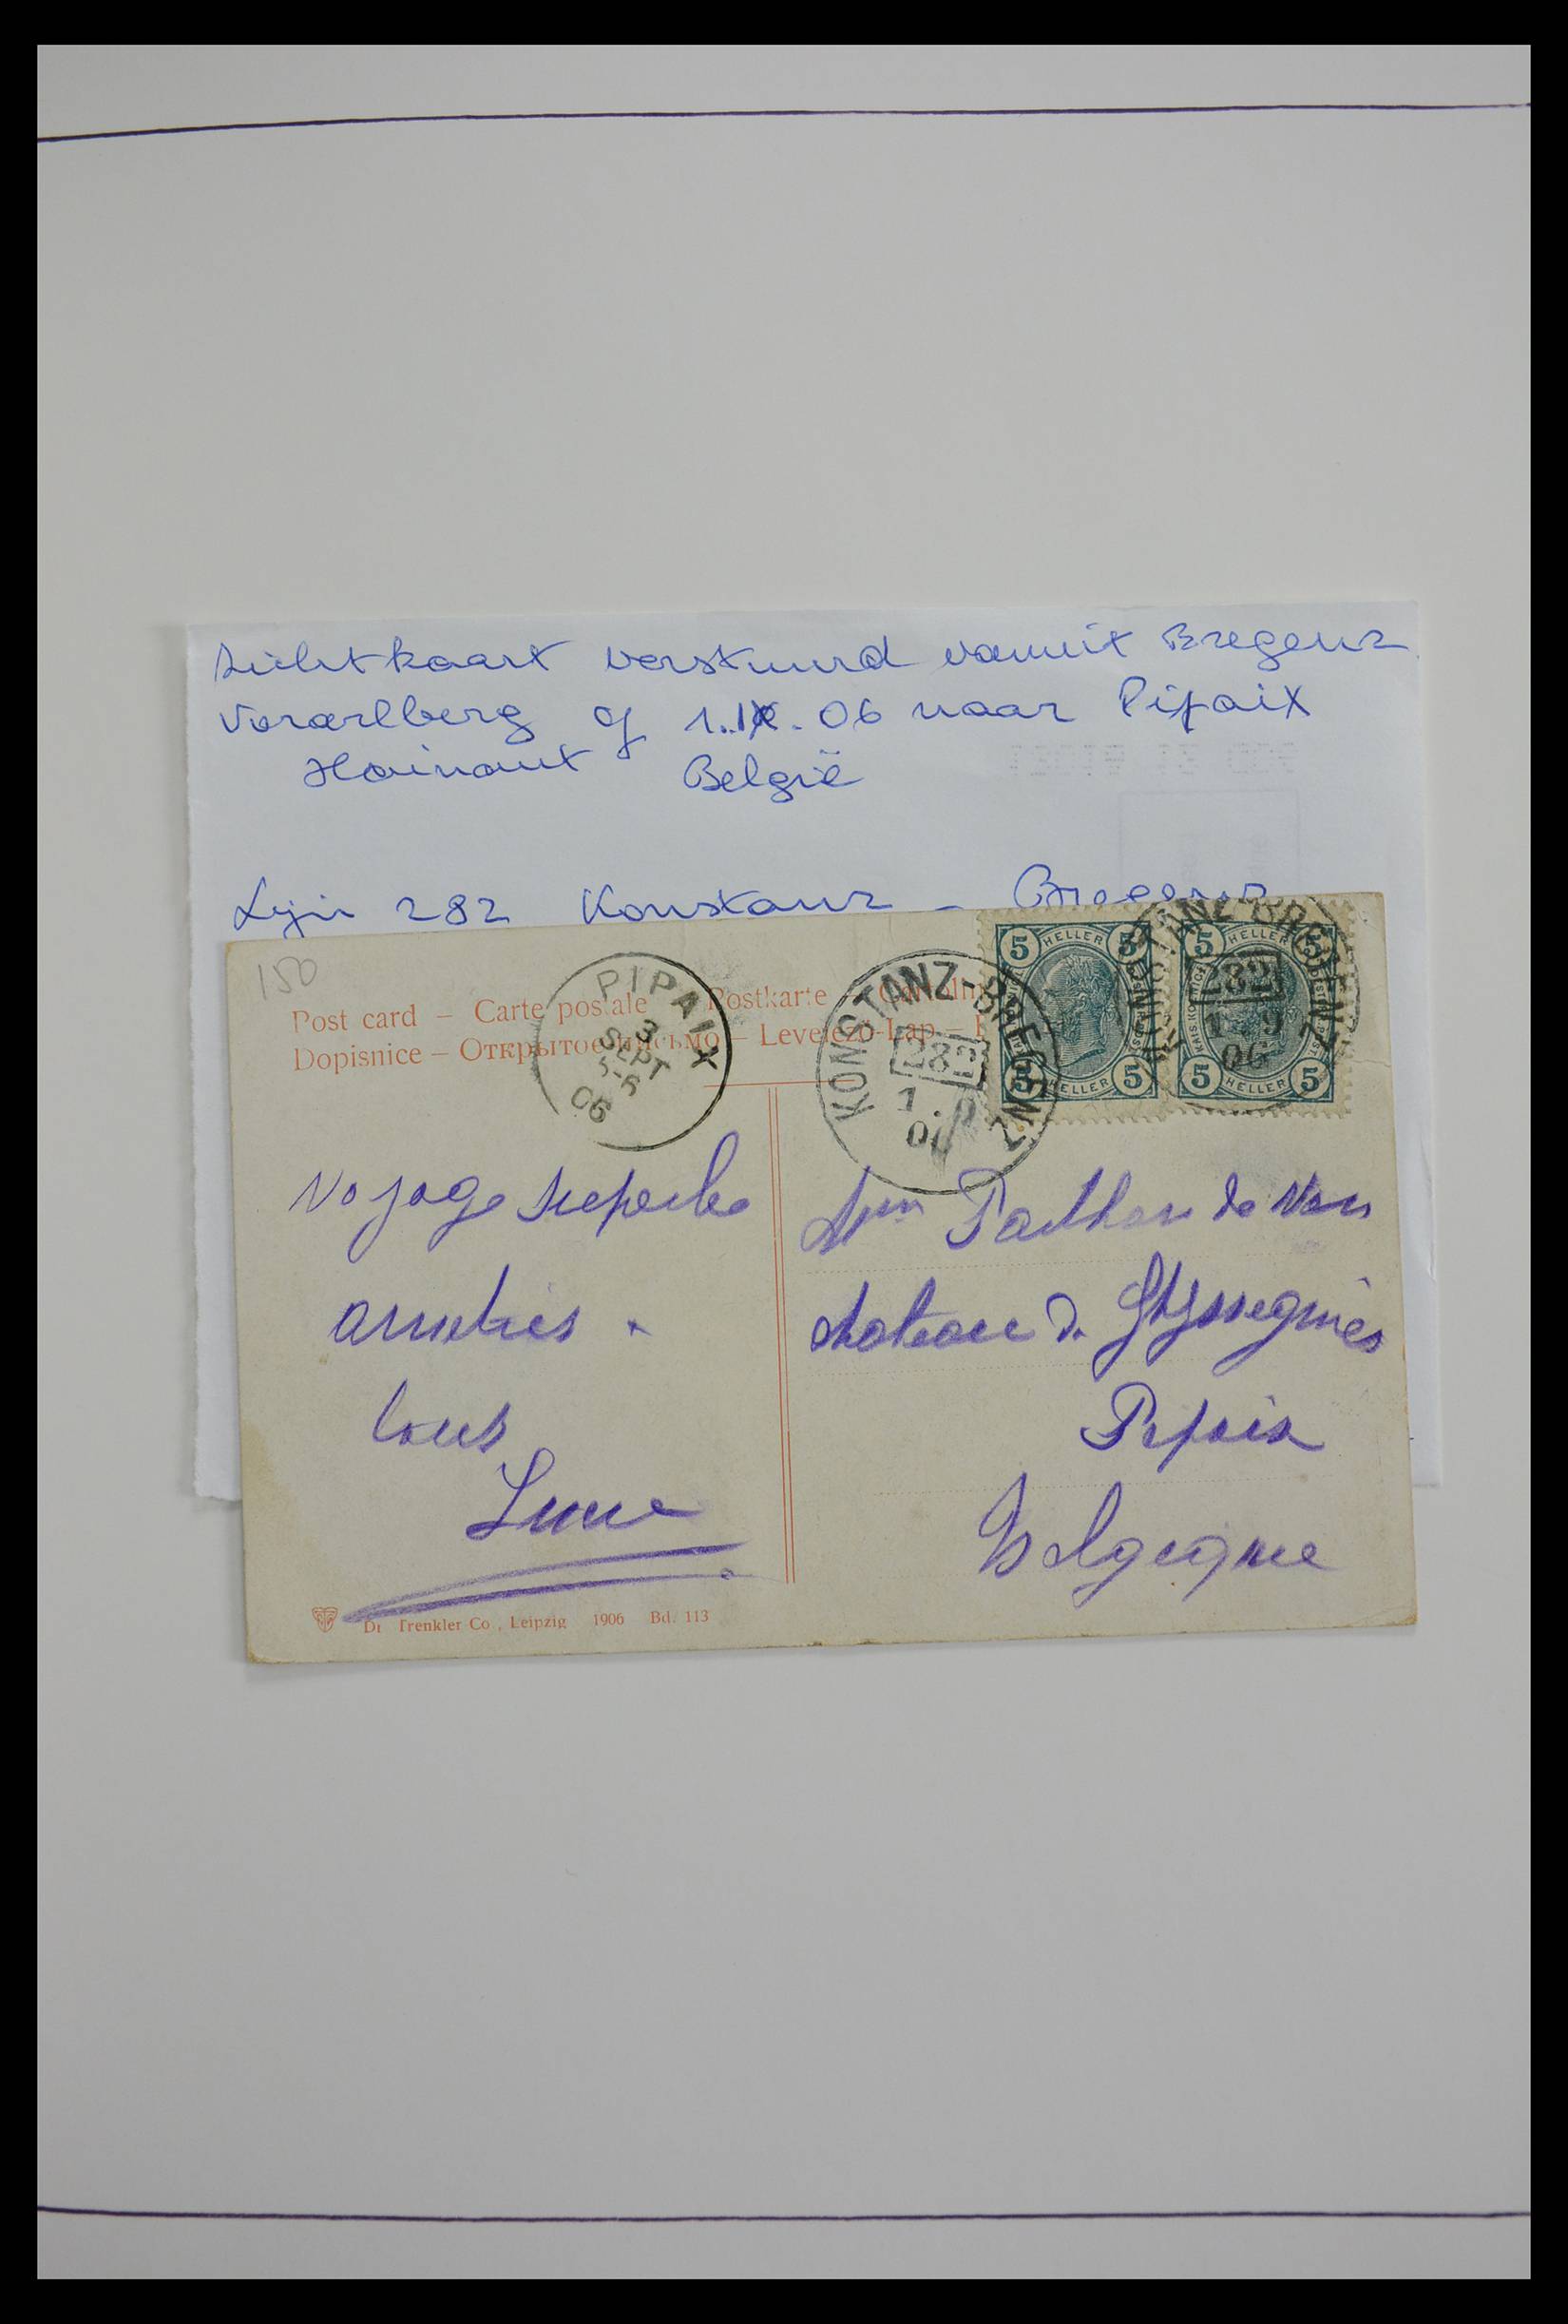 Zichtkaart verstuurd vanuit Bregenz
Vorarlberg op 1.IX.06 naar Pipaix
Hainaut België
Lijn 282 Konstanz - Bregenz
150
Post card – Carte postale – Postkarte –
Dopisnice – Открытое письмо – Levelező-Lap –
PIPAIX
3
SEPT
5-6
06
KONSTANZ-BREGENZ
282
1.9
06
5 HELLER 5
5 HELLER 5
5 HELLER 5
5 HELLER 5
KONSTANZ-BREGENZ
282
1 9
06
Voyage superbe
amitiés
Louis
chateau de
Pipaix
Belgique
Dr Trenkler Co., Leipzig 1906 Bd. 113